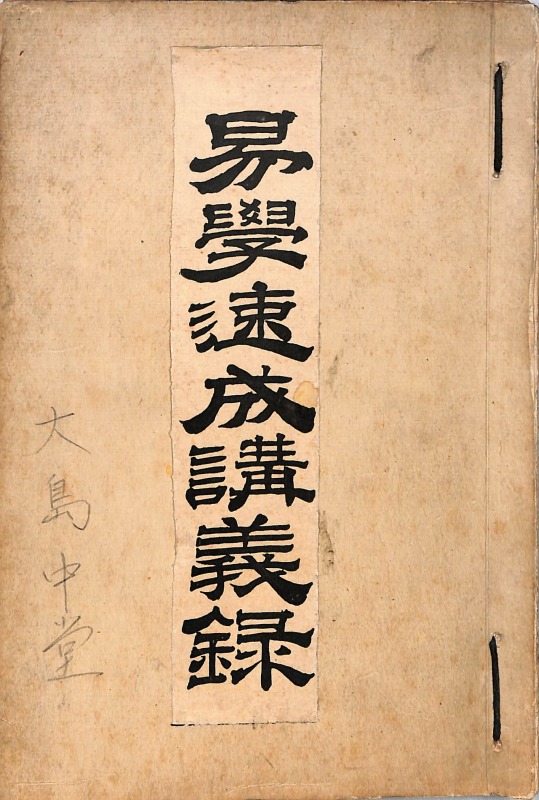 易學速成講義録
大島中堂